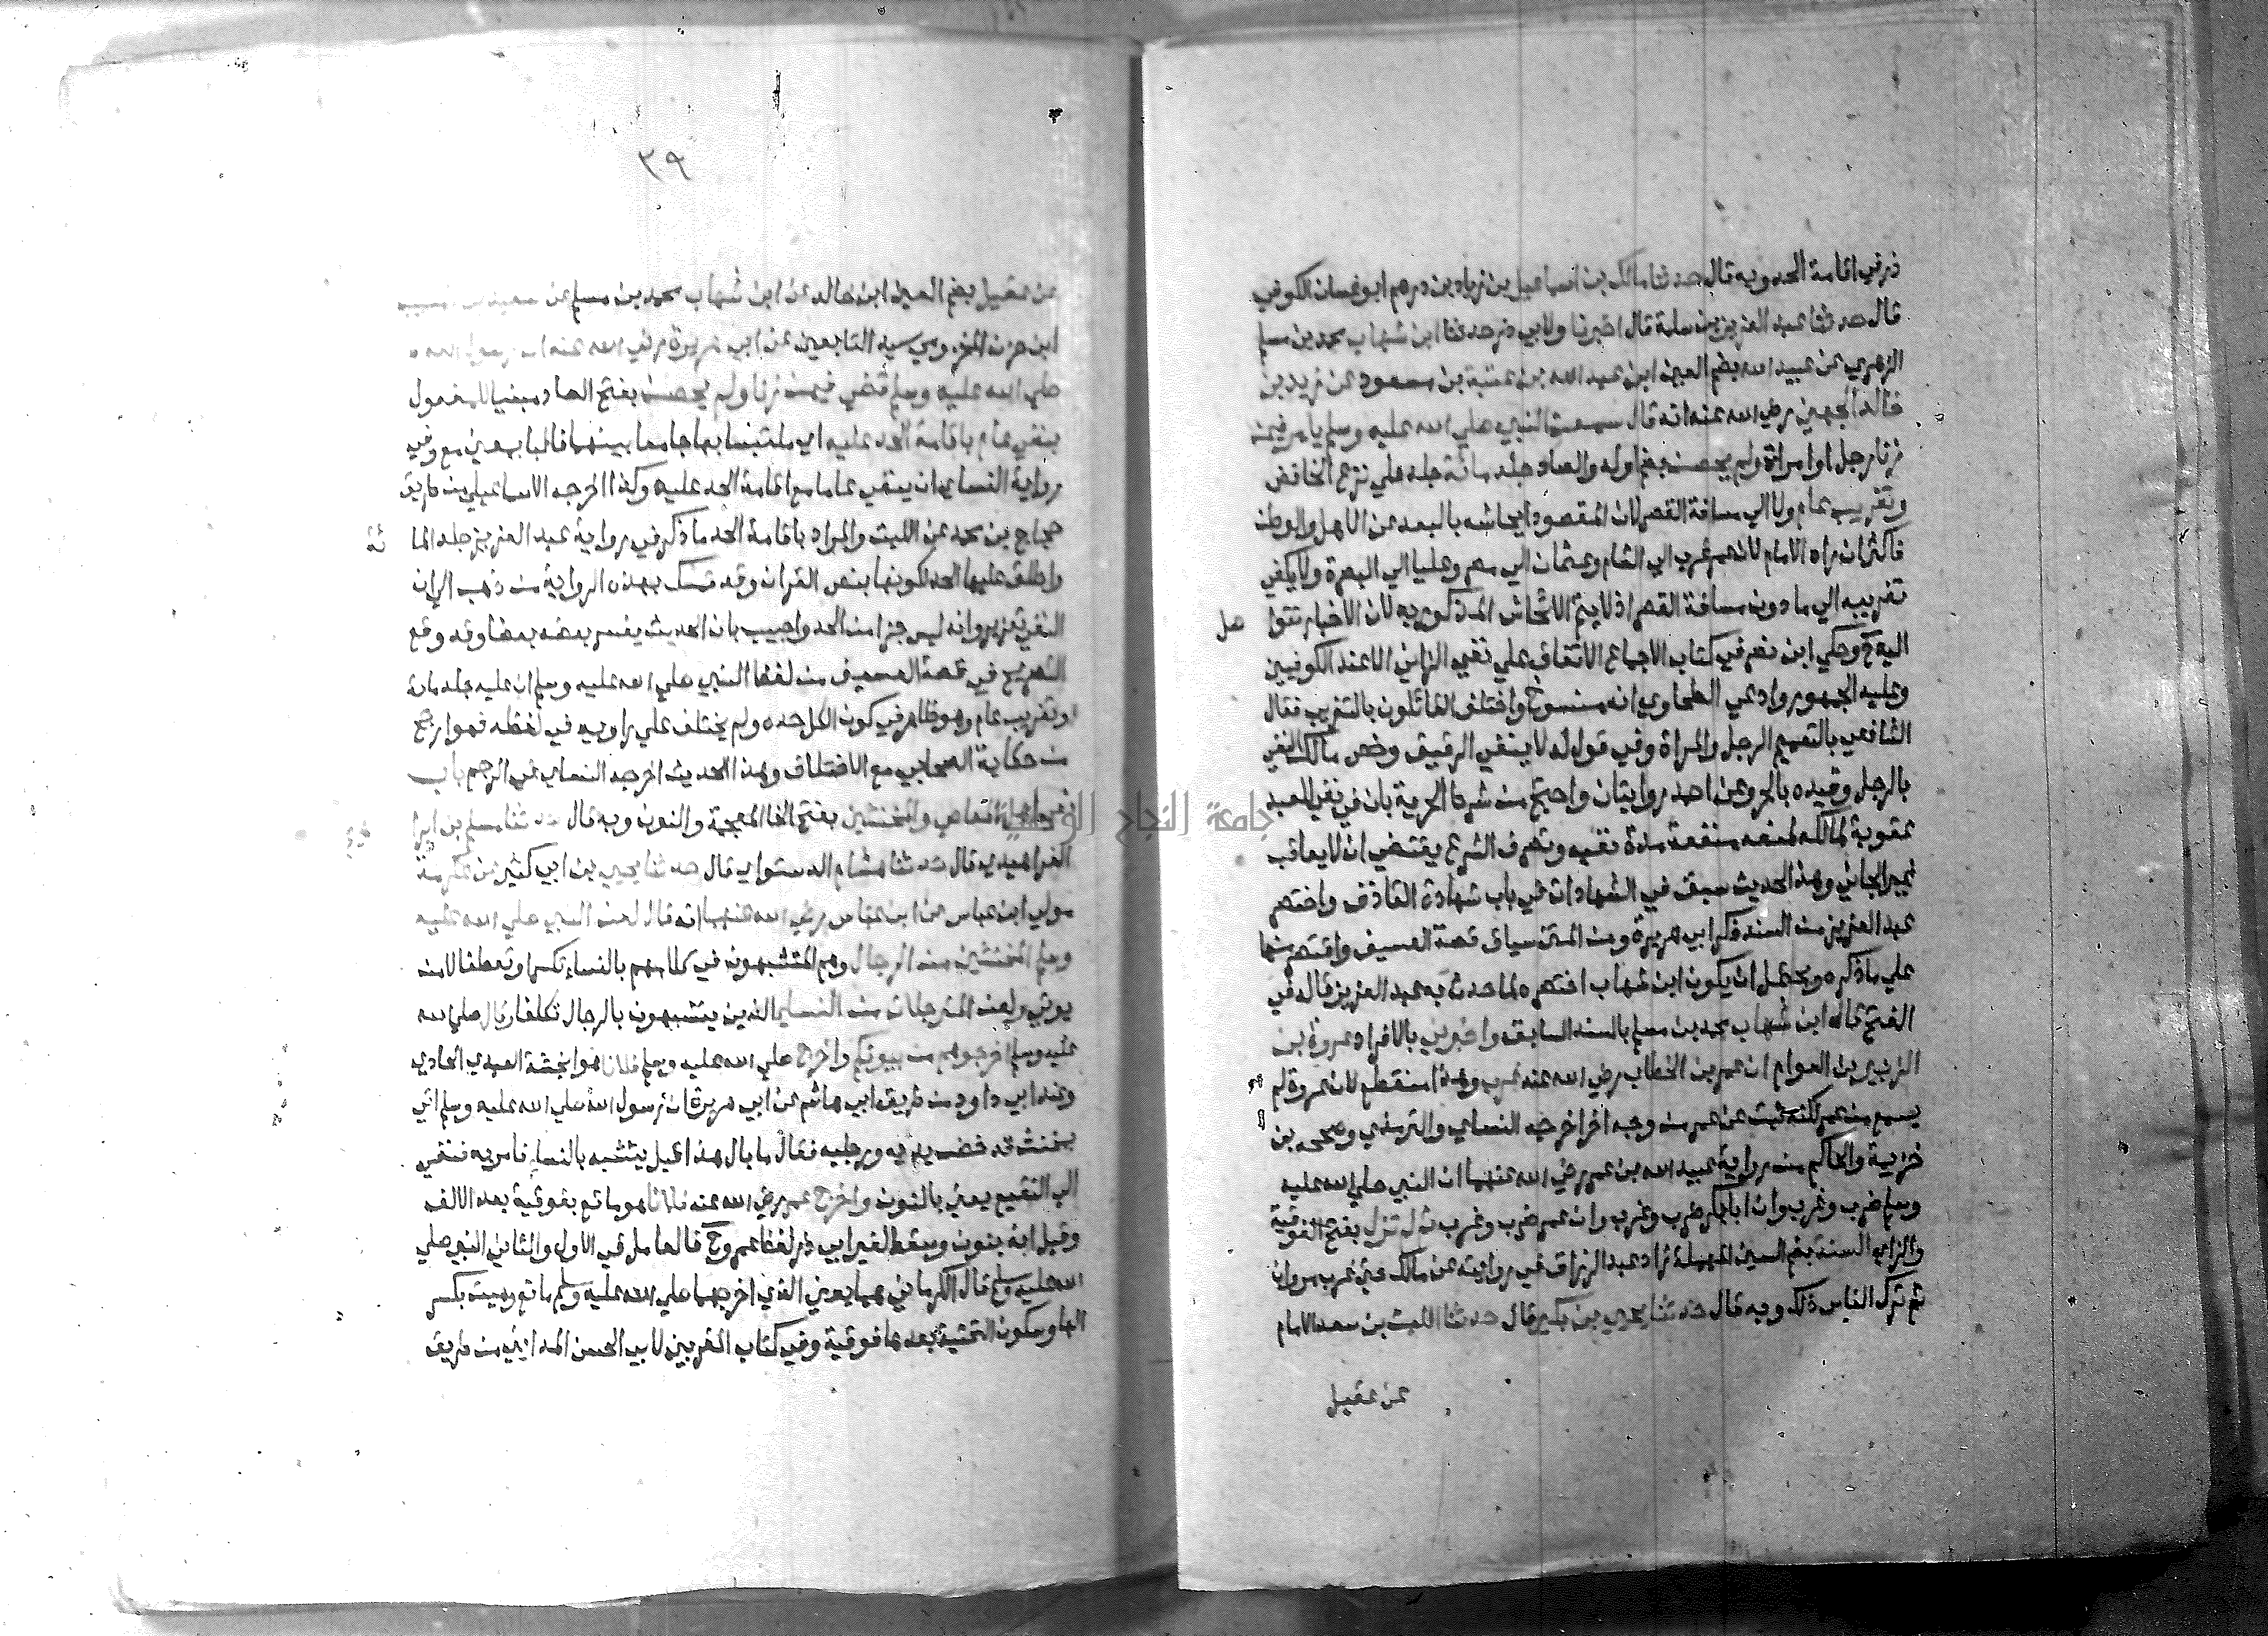 ذر في اقامة الحد وبه قال حدثنا مالك بن اسماعيل بن زياد بن درهم ابو غسان الكوفي
قال حدثنا عبد العزيز بن سلمة قال اخبرنا ولابي ذر حدثنا ابن شهاب محمد بن مسلم
الزهري عن عبيد الله بضم العين ابن عبد الله بن عتبة بن مسعود عن زيد بن
خالد الجهين رضي الله عنه انه قال سمعت النبي صلي الله عليه وسلم يامر فيمن
زنا رجل او امراة ولم يحصن بضم اوله والصاد جلد مائة جلد علي نزع الخافض
وتغريب عام ولا الي مسافة القصر لان المقصود ايحاشه بالبعد عن الاهل والوطن
فاكثر ان راه الامام لان عمر غرب الي الشام وعثمان الي مصر وعليا الي البصرة ولا يكفي
تغريبه الي ما دون مسافة القصر اذ لا يتم الايحاش المذكور به لان الاخبار تتوا صل
اليه ح وحكي ابن نصر في كتاب الاجماع الاتفاق علي نفي الزاني الا عند الكوفيين
وعليه الجمهور وادعي الطحاوي انه منسوخ واختلف القائلون بالتغريب فقال
الشافعي بالتعميم الرجل والمراة وفي قول له لا ينفي الرقيق وخص مالك النفي
بالرجل وقيده بالحر وعن احمد روايتان واحتج من شرط الحرية بان في نفي العبد
عقوبة لمالكه لمنعه منفعة مدة نفيه وتصرف الشرع يقتضي ان لا يعاقب
غير الجاني وهذا الحديث سبق في الشهادات في باب شهادة القاذف واختصر
عبد العزيز من السند ذكر ابي هريرة ومن المتن سياق قصة العسيف واقتصر منها
علي ما ذكره ويحتمل ان يكون ابن شهاب اختصره لما حدث به عبد العزيز قاله في
الفتح قال ابن شهاب محمد بن مسلم بالسند السابق واخبرني بالافراد عروة بن
الزبير بن العوام ان عمر بن الخطاب رضي الله عنه غرب وهذا منقطع لان عروة لم
يسمع من عمر لكنه ثبت عن عمر من وجه اخر اخرجه النسائي والترمذي وصححه بن
خزيمة والحاكم من رواية عبيد الله بن عمر رضي الله عنهما ان النبي صلي الله عليه
وسلم ضرب وغرب وان ابا بكر ضرب وغرب وان عمر ضرب وغرب ثم لم تزل بفتح الفوقية
والزاي السنة بضم السين المهملة زاد عبد الرزاق في روايته عن مالك حتي غرب مروان
ثم ترك الناس ذلك وبه قال حدثنا يحيي بن بكير قال حدثنا الليث بن سعد الامام
عن عقيل
٣٩
عن عقيل بضم العين ابن خالد عن ابن شهاب محمد بن مسلم عن سعيد بن المسيب
ابن حزن المخزومي سيد التابعين عن ابي هريرة رضي الله عنه ان رسول الله
صلي الله عليه وسلم قضي فيمن زنا ولم يحصن بفتح الصاد مبنيا للمفعول
بنفي عام باقامة الحد عليه اي ملتبسا بها جامعا بينهما فالبا بمعني مع وفي
رواية النسائي ان ينفي عاما مع اقامة الحد عليه وكذا اخرجه الاسماعيلي من طريق
حجاج بن محمد عن الليث والمراد باقامة الحد ما ذكر في رواية عبد العزيز جلد الما ئة
واطلق عليها الحد لكونها بنص القران وقد تمسك بهذه الرواية من ذهب الي ان
النفي تعزير وانه ليس جزا من الحد واجيب بان الحديث يفسر بعضه بعضا وقد وقع
التصريح في قصة العسيف من لفظ النبي صلي الله عليه وسلم ان عليه جلد مائة
وتغريب عام وهو ظاهر في كون الكل حده ولم يختلف علي راويه في لفظه فهو ارجح
من حكاية الصحابي مع الاختلاف وهذا الحديث اخرجه النسائي في الرجم باب
نفي اهل المعاصي والمخنثين بفتح الخا المعجمة والنون وبه قال حدثنا مسلم بن ابرا هيم
الفراهيدي قال حدثنا هشام الدستواي قال حدثنا يحيي بن ابي كثير عن عكرمة
مولي ابن عباس عن ابن عباس رضي الله عنهما انه قال لعن النبي صلي الله عليه
وسلم المخنثين من الرجال وهم المتشبهون في كلامهم بالنساء تكسرا وتعطفا لا من
يوتي ولعن المترجلات من النساء الذين يتشبهون بالرجال تكلفا وقال صلي الله
عليه وسلم اخرجوهم من بيوتكم واخرج صلي الله عليه وسلم فلانا هو انجشة العبدي الحادي
وعند ابي داود من طريق ابي هاشم عن ابي هريرة ان رسول الله صلي الله عليه وسلم اتي
بمخنث قد خضب يديه ورجليه فقال ما بال هذا قيل يتشبه بالنساء فامر به فنفي
الي النقيع يعني بالنون واخرج عمر رضي الله عنه فلانا هو ماتع بفوقية بعد الالف
وقيل انه بنون وسقط لغير ابي ذر لفظ عمر وح فالعامل في الاول والثاني النبي صلي
الله عليه وسلم قال الكرماني هما يعني الذي اخرجهما صلي الله عليه وسلم ماتع وهيت بكسر
الها وسكون التحتية بعدها فوقية وفي كتاب المغربين لابي الحسن المدايني من طريق
جامعة النجاح الوطنية